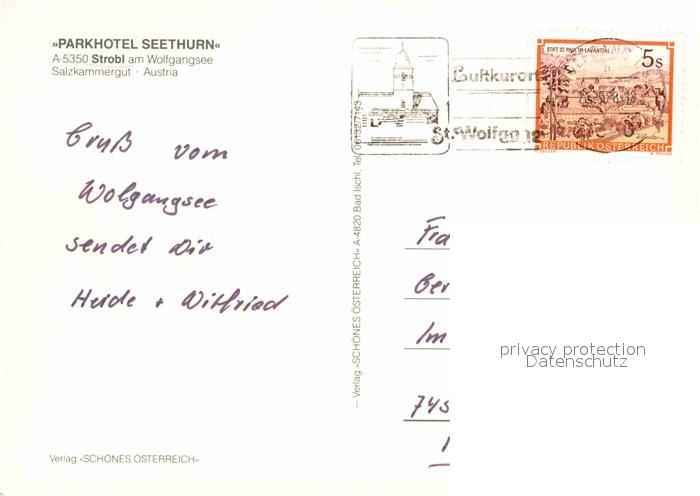 »PARKHOTEL SEETHURN«
A-5350 Strobl am Wolfgangsee
Salzkammergut · Austria
Gruß vom
Wolgangsee
sendet Dir
Heide + Wilfried
Verlag »SCHÖNES ÖSTERREICH«
— Verlag »SCHÖNES ÖSTERREICH« A-4820 Bad Ischl, Tel. 06132/7143
Luftkurort
St. Wolfgang
STIFT ST. PAUL IM LAVANTTAL
5 s
REPUBLIK ÖSTERREICH
Fra
Ger
Im
745
privacy protection
Datenschutz